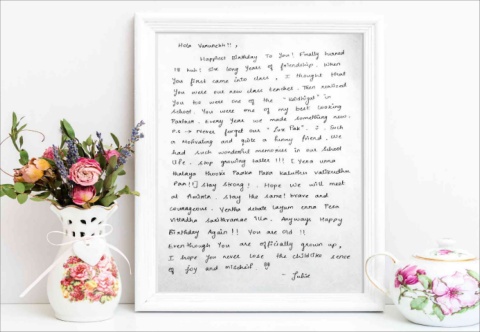 Hola Varunekh!!,
Happiest Birthday To You! Finally turned
18 huh! Our long Years of friendship, When
You first came into class, I thought that
You were our new class teacher. Then realised
You too were one of the "Goodiyot" in
School. You were one of my best cooking
Partner. Every Year we made something new.
P.S → Never forget our "Zoo Pak". 2. Such
a Motivating and quite a funny friend. We
had such wonderful memories in our school
life. Stop growing taller !!! I Yena unna
thalaya thooki Paaka Paaka kaluthu valikudhu
Paa!!] Stay strong! . Hope we will meet
at . Stay the same! brave and
courageous. Yentha debate layum enna Pesa
Vittadha Sarithramae illa. Anyways Happy
Birthday Again!! You are Old !!
Even though You are officially grown up,
I hope You never lose the childlike sense
of joy and mischief
- Julie